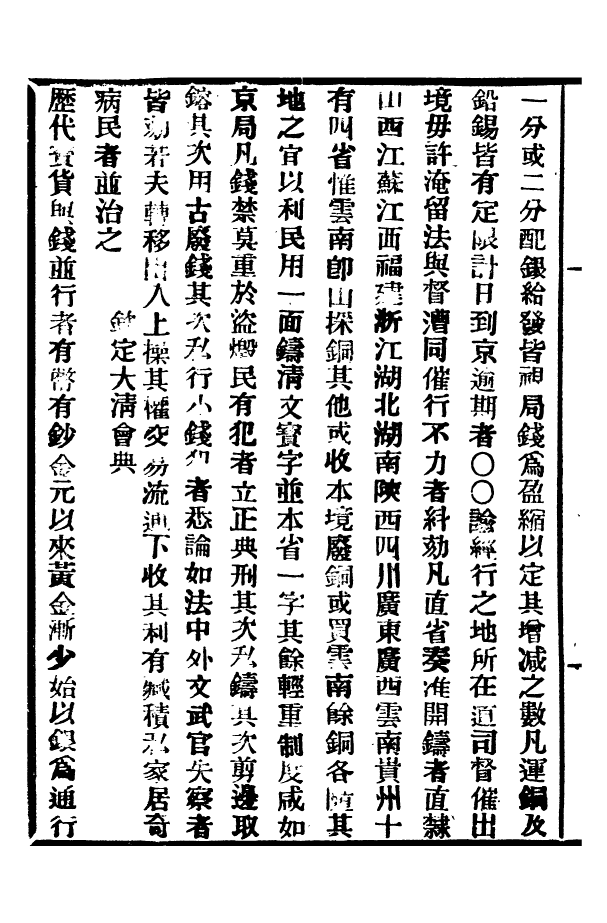 一分或二分配銀給發皆視局錢爲盈縮以定其增减之數凡運銅及
鉛錫皆有定限計日到京逾期者〇〇論經行之地所在道司督催出
境毋許淹留法與督漕同催行不力者糾劾凡直省奏准開鑄者直隸
山西江蘇江西福建浙江湖北湖南陝西四川廣東廣西雲南貴州十
有四省惟雲南卽山採銅其他或收本境廢銅或買雲南餘銅各隨其
地之宜以利民用一面鑄淸文寶字並本省一字其餘輕重制度咸如
京局凡錢禁莫重於盜燬民有犯者立正典刑其次私鑄其次剪邊取
鎔其次用古廢錢其次私行小錢犯者悉論如法中外文武官失察者
皆劾若夫轉移出入上操其權交易流通下收其利有緘積私家居奇
病民者並治之
欽定大淸會典
歷代寶貨與錢並行者有幣有鈔金元以來黃金漸少始以銀爲通行